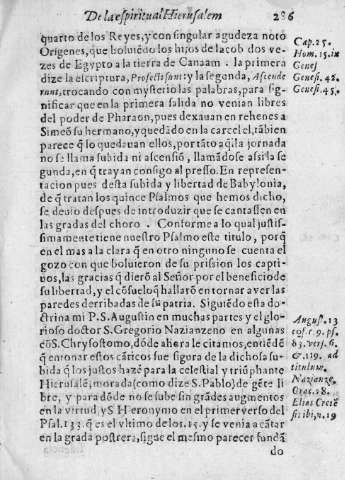 De la espiritual Hierusalem 286
quarto de los Reyes, y con singular agudeza notó
Origenes, que boluiẽdo los hijos de Iacob dos ve-
zes de Egypto a la tierra de Canaam. la primera
dize la escriptura, Profecti sunt: y la segunda, Ascende
runt, trocando con mysterio las palabras, para sig-
nificar que en la primera salida no venian libres
del poder de Pharaon, pues dexauan en rehenes a
Simeõ su hermano, y quedado en la carcel el, tãbien
parece q̃ lo quedauan ellos, por tãto aq̃lla jornada
no se llama subida ni ascensiõ, llamãdose assi la se
gunda, en q̃ trayan consigo al presso. En represen-
tacion pues desta subida y libertad de Babylonia,
de q̃ tratan los quince Psalmos que hemos dicho,
se deuio despues de introduzir que se cantassen en
las gradas del choro. Conforme a lo qual justis-
simamente tiene nuestro Psalmo este titulo, porq̃
en el mas a la clara q̃ en otro ninguno se cuenta el
gozo con que boluieron de su prission los capti-
uos, las gracias q̃ dierõ al Señor por el beneficio de
su libertad, y el cõsuelo q̃ hallarõ en tornar a ver las
paredes derribadas de su patria. Siguiẽdo esta do-
ctrina mi P.S. Augustin en muchas partes y el glo-
rioso doctor S. Gregorio Nazianzeno en algunas
cõ S. Chrysostomo, dõde ahora le citamos, entiẽdẽ
q̃ entonar estos cãticos fue figura de la dichosa su-
bida q̃ los justos hazẽ para la celestial y triũphante
Hierusalẽ, morada (como dize S. Pablo) de gẽte li
bre, y para dõde no se sube sin grãdes augmentos
en la virtud, y S Hieronymo en el primer verso del
Psal. 133. q̃ es el vltimo de los. 15. y se venia a cãtar
en la grada postrera, sigue el mesmo parecer fundã
do
Cap. 25.
Hom. 15. in
Genes.
Genesi. 42.
Genesi. 45.
August. 13
83. vers. 6.
& 119. ad
titulum.
Nazianze.
Orat. 28.
Elias Creté
sis ibi, n. 19